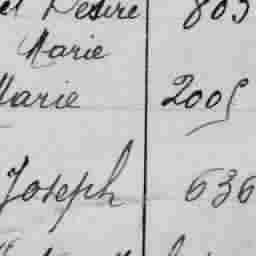 et Désiré 803
Marie
Marie 2005
Joseph 636